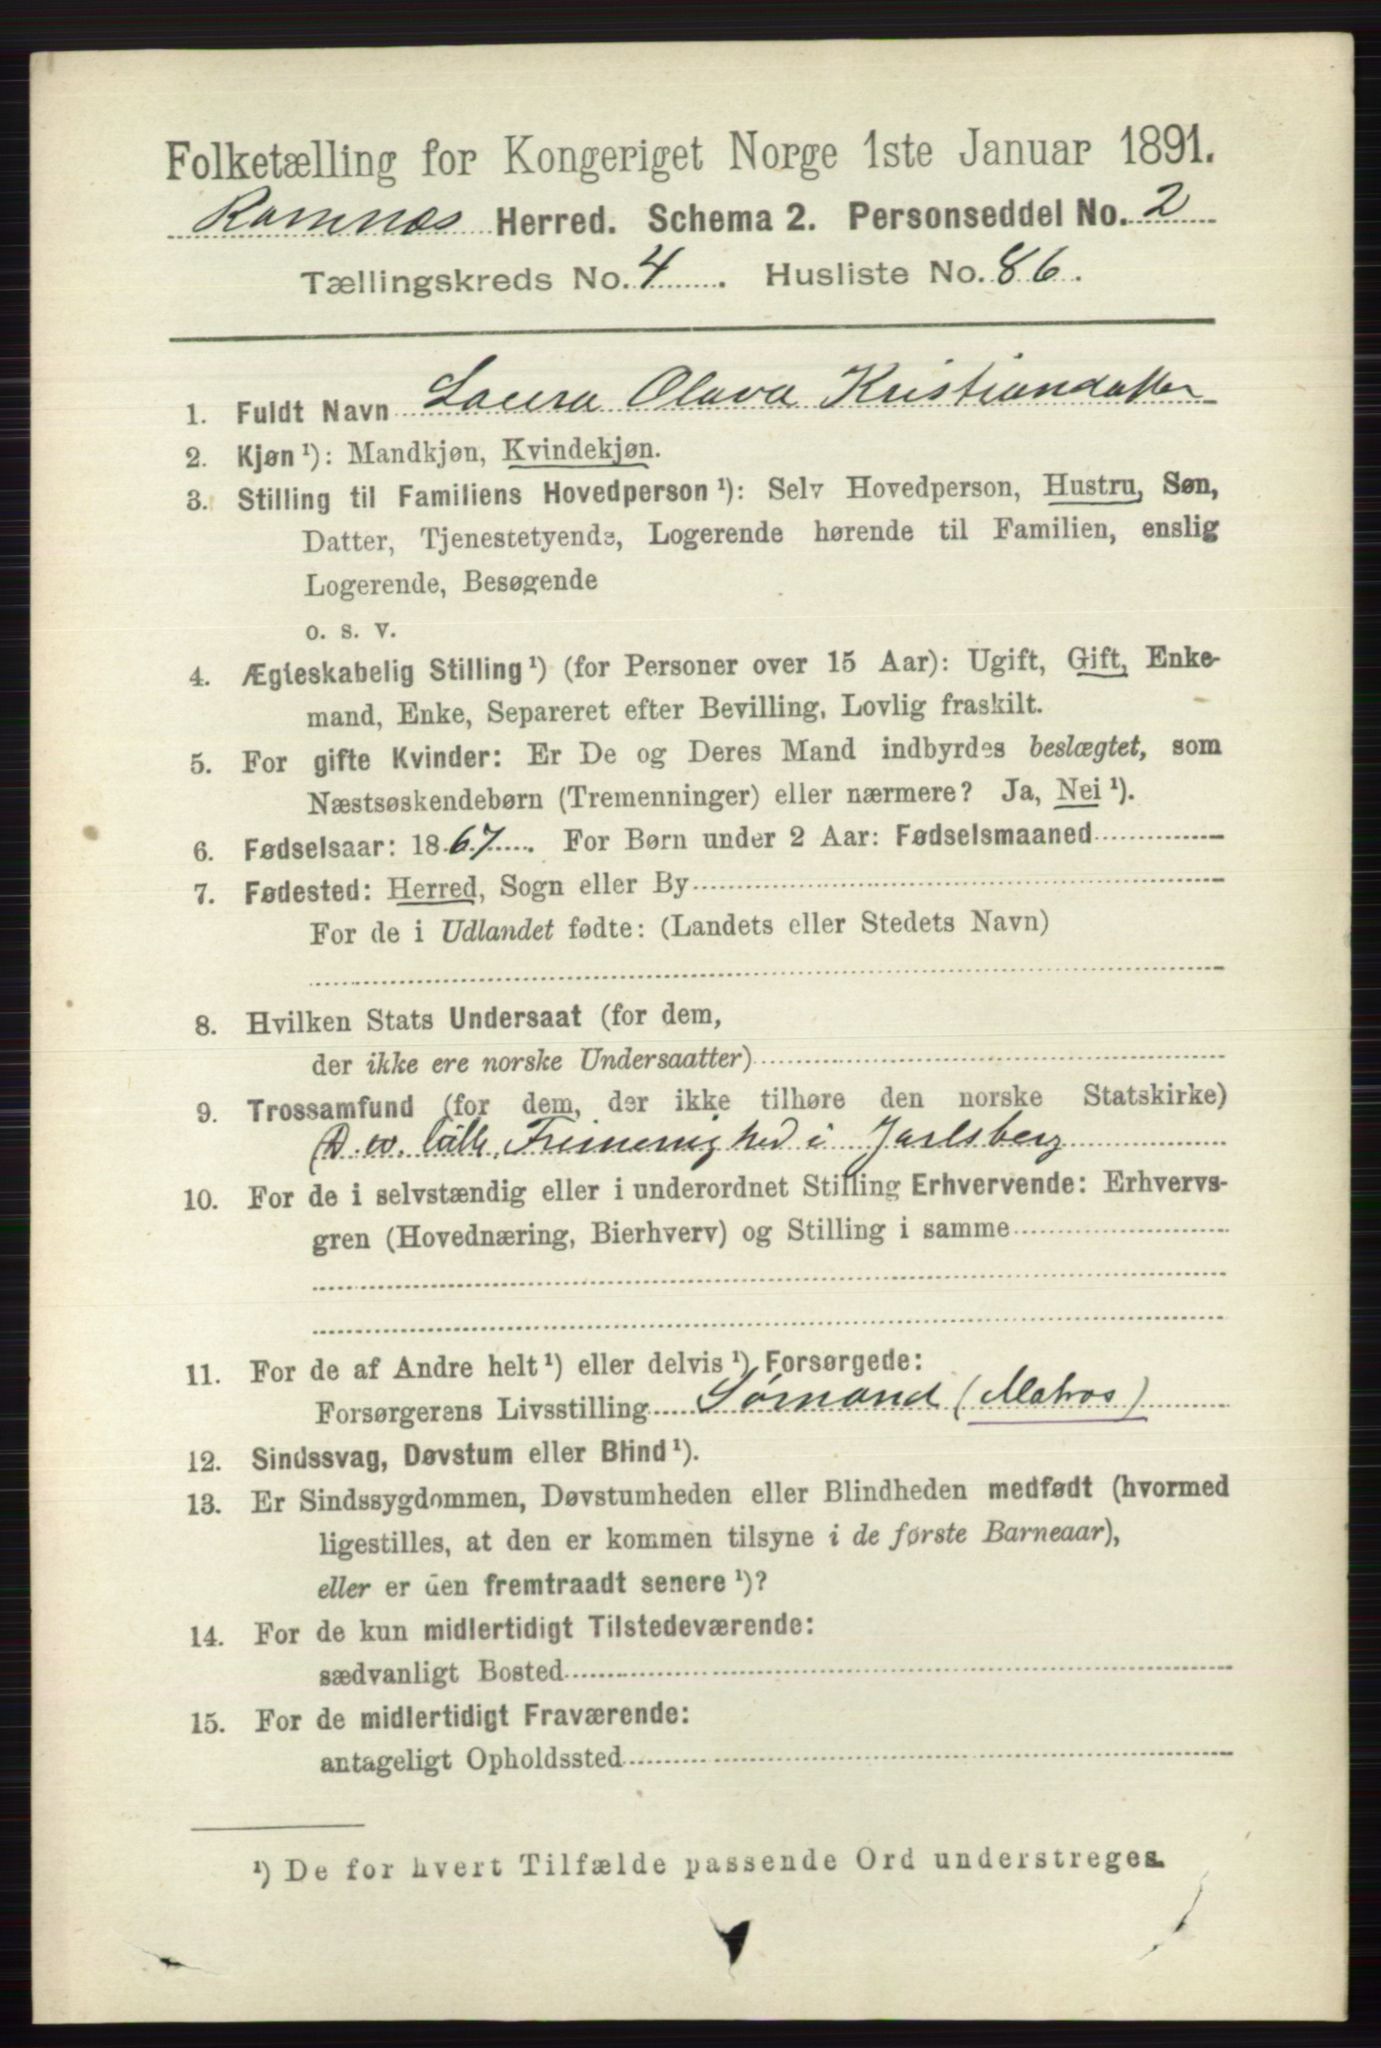 Folketælling for Kongeriget Norge 1ste Januar 1891.
Ramnæs Herred. Schema 2. Personseddel No. 2
Tællingskreds No. 4. Husliste No. 86.
1. Fuldt Navn Laura Olava Kristiansdatter
2. Kjøn ¹): Mandkjøn, Kvindekjøn.
3. Stilling til Familiens Hovedperson ¹): Selv Hovedperson, Hustru, Søn,
Datter, Tjenestetyende, Logerende hørende til Familien, enslig
Logerende, Besøgende
o. s. v.
4. Ægteskabelig Stilling ¹) (for Personer over 15 Aar): Ugift, Gift, Enke-
mand, Enke, Separeret efter Bevilling, Lovlig fraskilt.
5. For gifte Kvinder: Er De og Deres Mand indbyrdes beslægtet, som
Næstsøskendebørn (Tremenninger) eller nærmere? Ja, Nei ¹).
6. Fødselsaar: 1867. For Børn under 2 Aar: Fødselsmaaned
7. Fødested: Herred, Sogn eller By
For de i Udlandet fødte: (Landets eller Stedets Navn)
8. Hvilken Stats Undersaat (for dem,
der ikke ere norske Undersaatter)
9. Trossamfund (for dem, der ikke tilhøre den norske Statskirke)
D. ev. luth. Frimenighed i Jarlsberg
10. For de i selvstændig eller i underordnet Stilling Erhvervende: Erhvervs-
gren (Hovednæring, Bierhverv) og Stilling i samme
11. For de af Andre helt ¹) eller delvis ¹) Forsørgede:
Forsørgerens Livsstilling Sømand (Matros)
12. Sindssvag, Døvstum eller Blind ¹).
13. Er Sindssygdommen, Døvstumheden eller Blindheden medfødt (hvormed
ligestilles, at den er kommen tilsyne i de første Barneaar),
eller er den fremtraadt senere ¹)?
14. For de kun midlertidigt Tilstedeværende:
sædvanligt Bosted
15. For de midlertidigt Fraværende:
antageligt Opholdssted
¹) De for hvert Tilfælde passende Ord understreges.